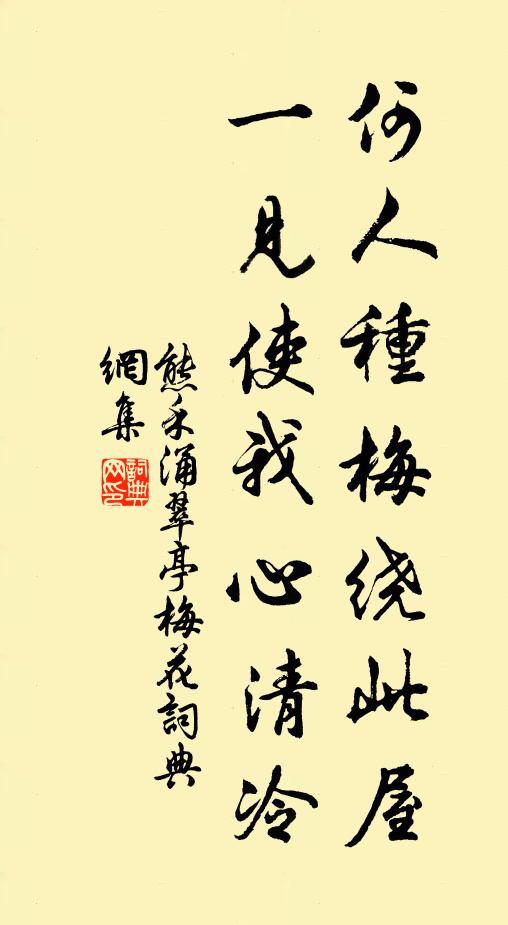 何人種梅绕此屋
一見使我心清冷
熊禾涌翠亭梅花詞典
網集
詞典
网印